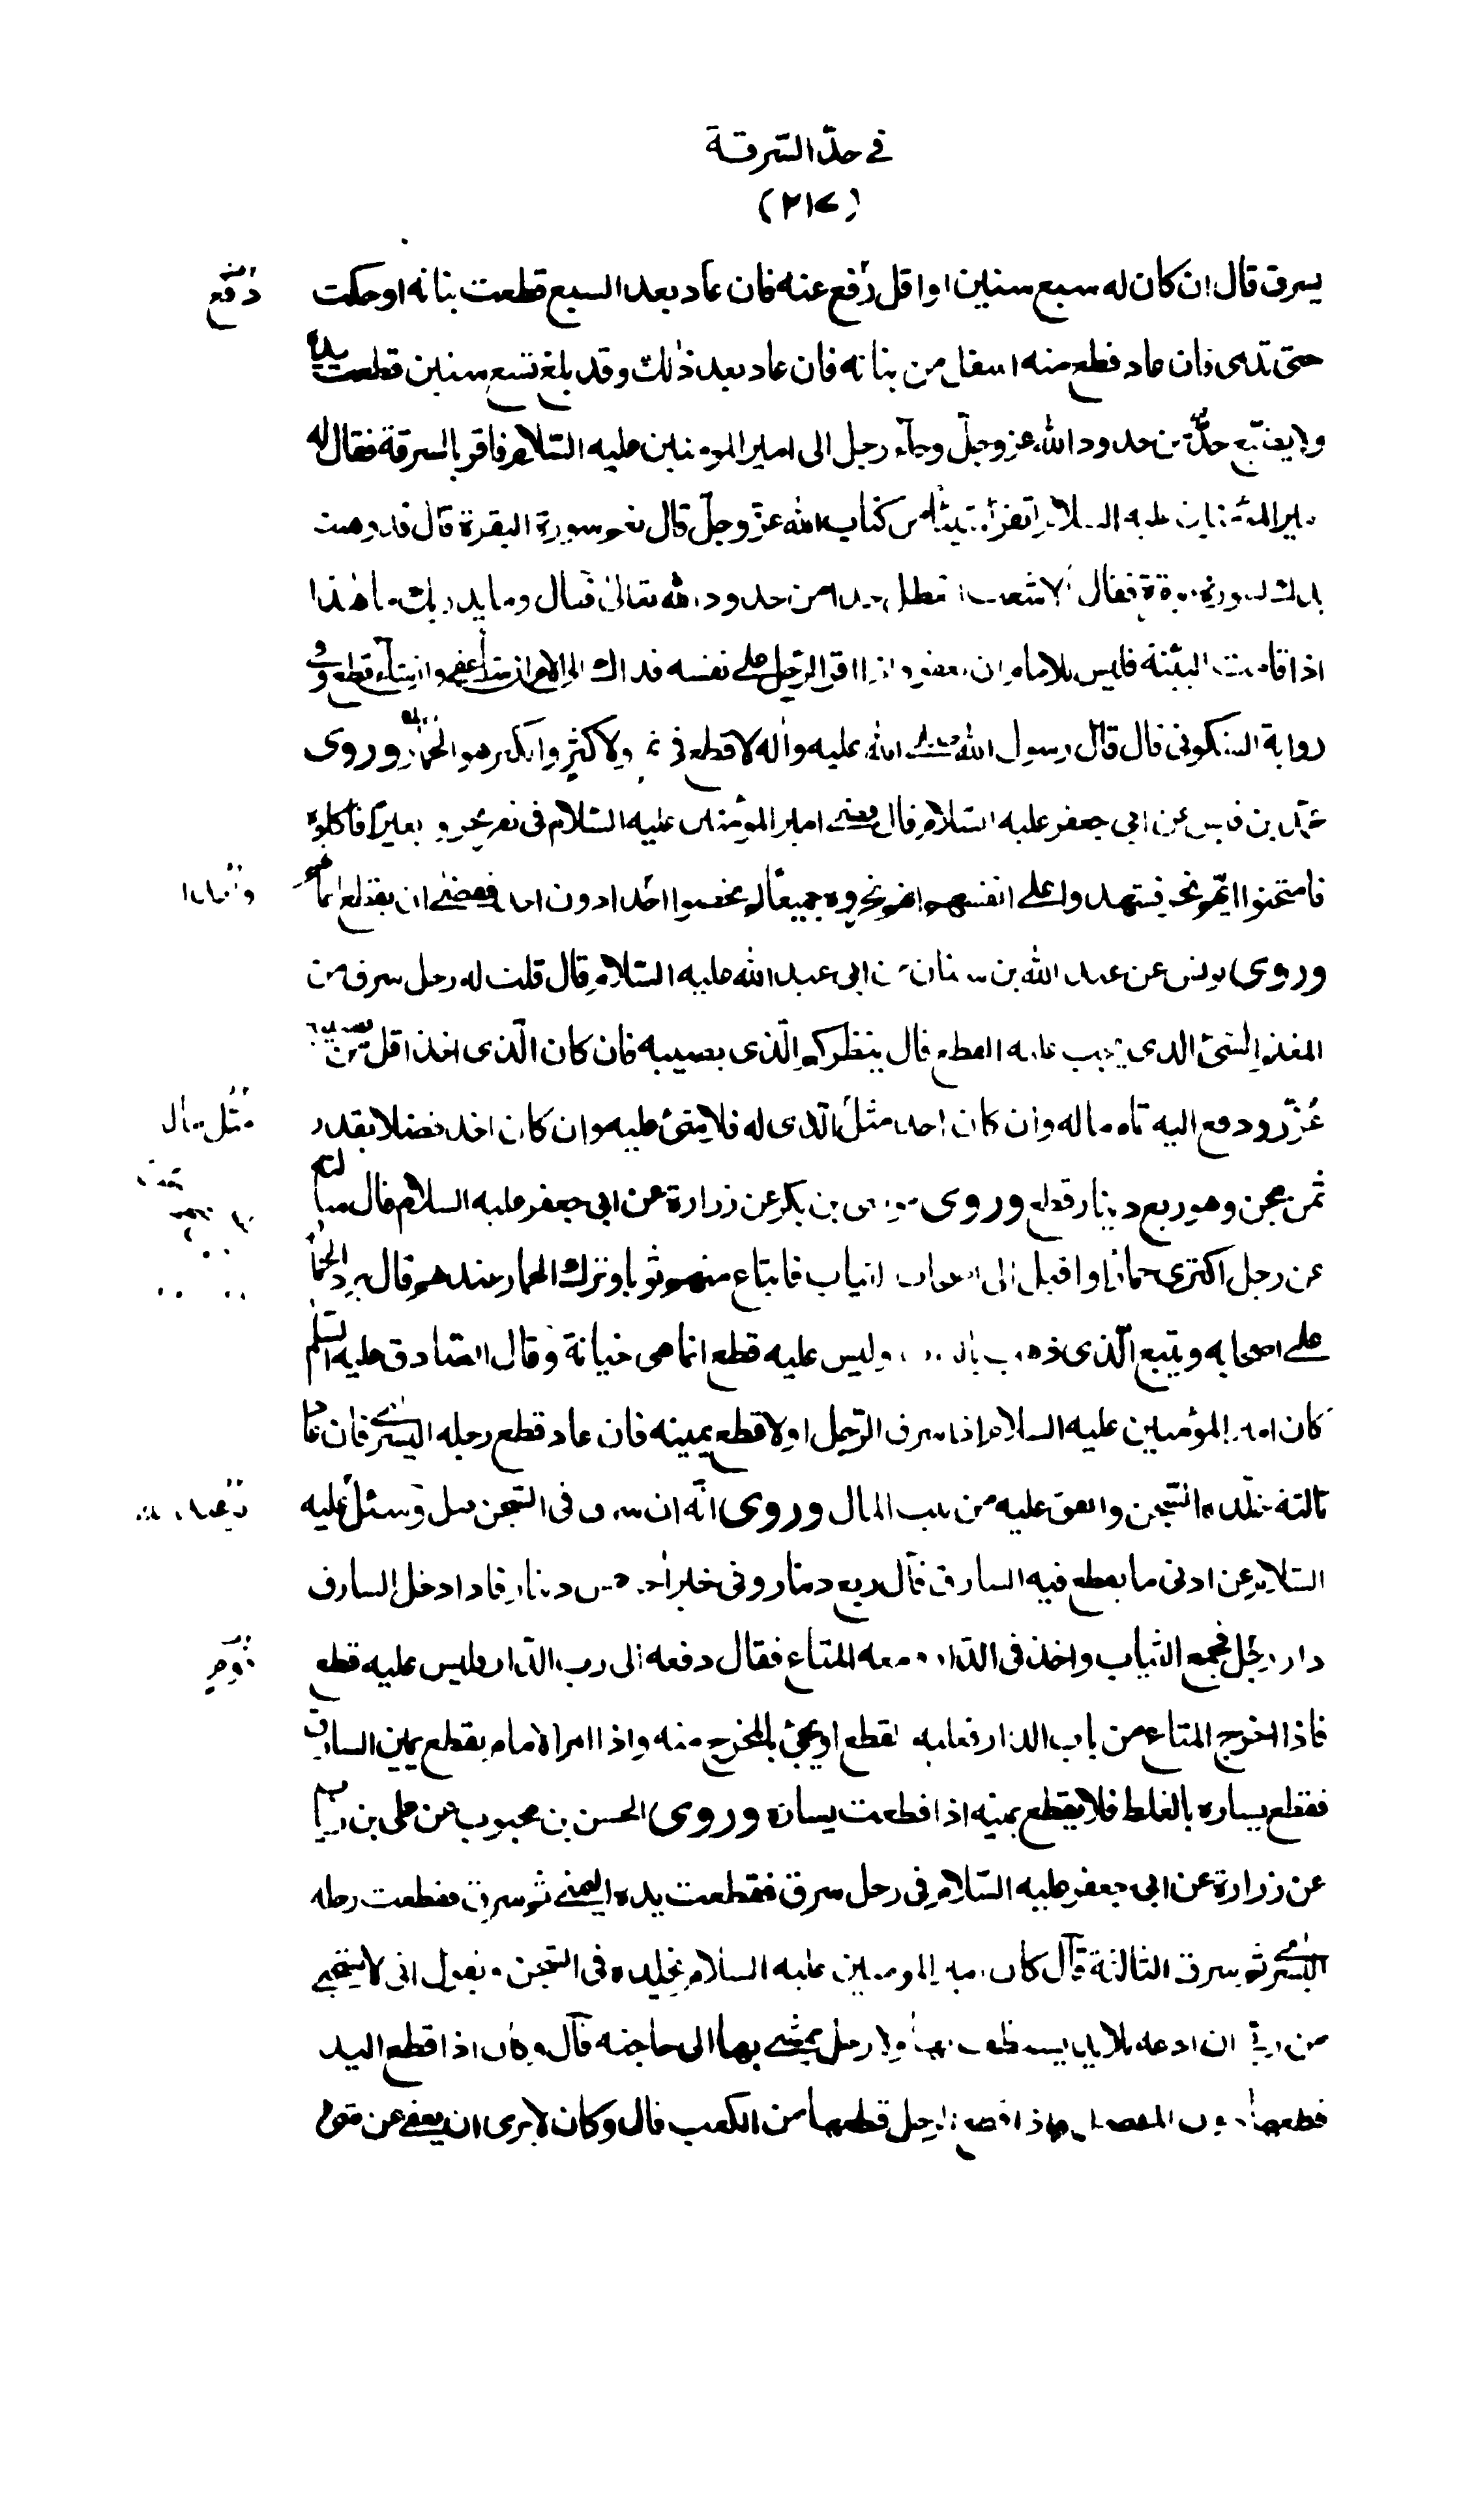 في حدّ السّرقة
(٢١٧)
يسرق قال ان كان له سبع سنين او اقل رفع عنه فان عاد بعد السبع قطعت بنانه او حكت
حتى تدمى فان عاد قطع منه اسفل من بنانه فان عاد بعد ذلك وقد بلغ تسع سنين قطعت يده
ولا يضيّع حدّ من حدود الله عز وجلّ وجآء رجل الى امير المومنين عليه السّلام فاقر بالسرقة فقال له
امير المؤمنين عليه السلام اتقرأ شيئا من كتاب الله عزّ وجلّ قال نعم سورة البقرة قال قد وهبت
يدك لسورة البقرة فقال الاشعث اتعطل حدا من حدود الله تعالى فقال وما يدريك ما هذا
اذا قامت البيّنة فليس للامام ان يعفو واذا اقر الرّجل على نفسه فذاك الى الامام ان شاء عفى وان شآء قطع وفي
رواية السّكوني قال قال رسول الله صلى الله عليه واله لا قطع في ثمر ولا كثر والكثر هو الجمّار وروى
محمّد بن قيس عن ابي جعفر عليه السّلام قال قضى امير المؤمنين عليه السّلام في نفر نحروا بعيرًا فاكلوه
فامتحنوا ايّهم نحر فشهدوا على انفسهم انهم نحروه جميعًا لم يخصوا احدا دون احد فقضى ان يقطع ايمانهم
وروى يونس عن عبد الله بن سنان عن ابي عبد الله عليه السّلام قال قلت له رجل سرق من
المغنم الشئ الذي يجب عليه القطع قال ينظر كم الّذى يصيبه فان كان الّذى اخذ اقل من نصيبه
عُزّر ودفع اليه تمام ماله وان كان اخذ مثل الّذى له فلا شئ عليه وان كان اخذ فضلا بقدر
ثمن مجن وهو ربع دينار قطع وروى موسى بن بكر عن زرارة عن ابي جعفر عليه السلام قال سألته
عن رجل اكترى حمارا واقبل الى اصحاب الثياب فابتاع منهم ثوبا وترك الحمار عندهم قال يرد الحمار
على اصحابه ويتبع الّذى ذهب بالثوب وليس عليه قطع انما هى خيانة وقال الصّادق عليه السّلم
كان امير المؤمنين عليه السلام اذا سرق الرّجل اولا قطع يمينه فان عاد قطع رجله اليسرى فان عاد
ثالثة خلّده السّجن وانفق عليه من بيت المال وروى انّه ان سرق في السّجن قتل وسئل عليه
السّلام عن ادنى ما يقطع فيه السارق قال ربع دينار وفى خبر اخر خمس دينار فاذا دخل السارق
دار رجل فجمع الثياب واخذ في الدّار ومعه المتاع فقال دفعه الى رب الدّار فليس عليه قطع
فاذا اخرج المتاع من باب الدار فعليه القطع او يجئ بالمخرج منه واذا امر الامام بقطع يمين السارق
فقطع يساره بالغلط فلا يقطع يمينه اذا قطعت يساره وروى الحسن بن محبوب عن على بن رئاب
عن زرارة عن ابى جعفر عليه السّلام في رجل سرق فقطعت يده اليمنى ثم سرق فقطعت رجله
اليسرى ثم سرق الثالثة قال كان امير المومنين عليه السلام يخلده فى السّجن ويقول انى لاستحيى
من ربّى ان ادعه بلا يد يستنظف بها ولا رجل يمشى بها الى حاجته قال وكان اذا قطع اليد
قطعها دون المفصل واذا قطع الرجل قطعها من الكعب قال وكان لا يرى ان يعفى عن شئ